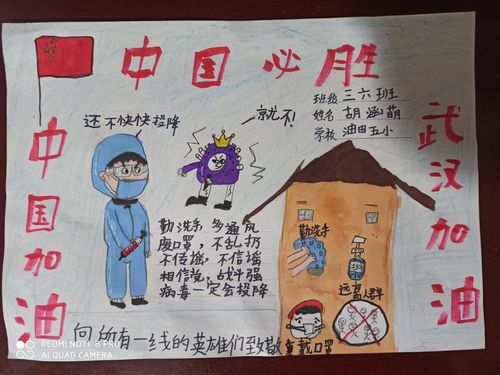 中国必胜
班级 三六班
姓名 胡涵萌
学校 油田五小
中国加油
武汉加油
还不快快投降
就不!
勤洗手 多通风
废口罩，不乱扔
不传摇，不信谣
相信党，战斗强
病毒一定会投降
勤洗手
远离人群
戴口罩
向所有一线的英雄们至敬
REDMI NOTE 8 PRO
AI QUAD CAMERA